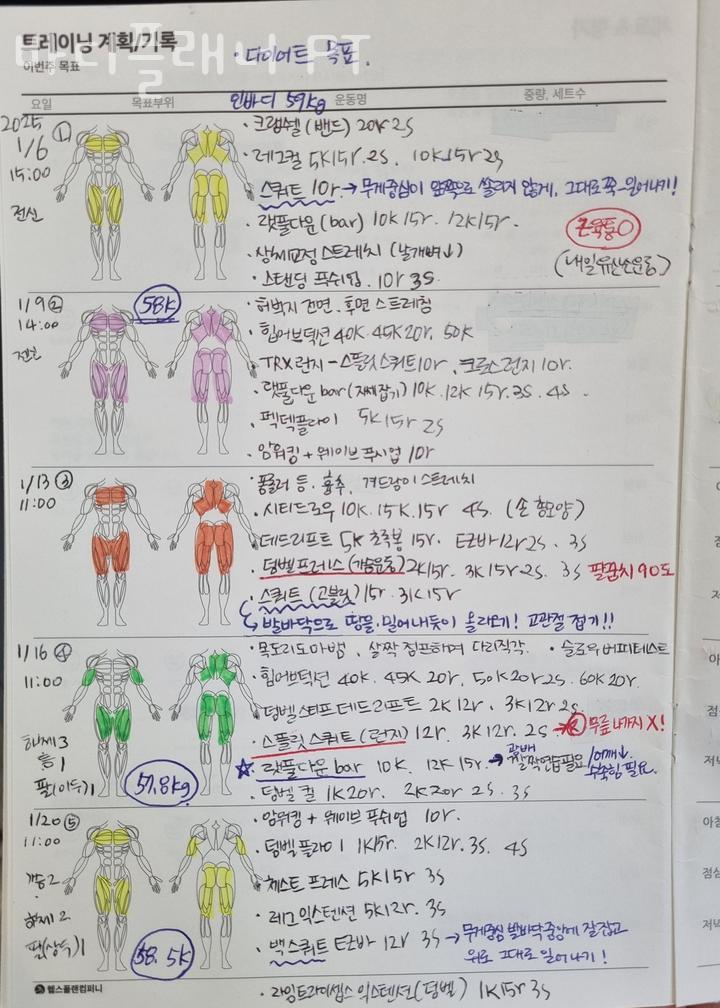 트레이닝 계획/기록
바디플래너 PT
이번주 목표
· 다이어트 목표.
요일 목표부위 인바디 59kg 운동명 중량, 세트수
2025
1/6 ①
15:00
전신
· 크랩쉘 (밴드) 20r 2s
· 레그컬 5K15r. 2s. 10K15r 2s
· 스쿼트 10r. → 무게중심이 앞쪽으로 쏠리지 않게. 그대로 쭉- 일어나기!
· 랫풀다운 (bar) 10K 15r. 12K15r.
근육통O
· 상체교정 스트레치
(내일 유산소운동)
· 스탠딩 푸쉬업. 10r 3S
1/9 ②
58K
14:00
· 허벅지 전면. 후면 스트레칭
· 힙어브덕션 40K. 45K 20r. 50K
· TRX 런지 - 스플릿스쿼트 10r. 크로스런지 10r.
· 랫풀다운 bar 10K. 12K 15r. 3S. 4S
· 펙덱플라이 5K15r 2S
· 암워킹 + 웨이브 푸쉬업 10r
1/13 ③
11:00
· 폼롤러 등. 흉추. 겨드랑이 스트레치
· 시티드로우 10K. 15K. 15r. 4S. (손 모양)
· 데드리프트 5K 15r. EZ바 12r 2s. 3S
· 덤벨프레스 (가슴운동) 2K15r. 3K15r. 2S. 3S 팔꿈치 90도
· 스쿼트 (고블릿) 15r. 3K15r
↳ 발바닥으로 땅을 밀어내듯이 올라오기! 고관절 접기!!
1/16 ④
11:00
하체3
등1
팔(이두)1
57.8kg
· 목도리도마뱀. 살짝 점프하며 다리직각. · 슬로우버피테스트
· 힙어브덕션 40K. 45K. 20r. 50K 20r 2S. 60K 20r.
· 덤벨스티프데드리프트 2K 12r. 3K12r 2S.
· 스플릿스쿼트 (런지) 12r. 3K 12r. 2S → 무릎 나가지 X!
☆· 랫풀다운 bar 10K. 12K 15r. → 광배 쫙 연습필요
· 덤벨 컬 1K20r. 2K20r 2S. 3S
1/20 ⑤
11:00
가슴2
하체2
팔(삼두)1
58.5K
· 암워킹 + 웨이브 푸쉬업 10r.
· 덤벨 플라이 1K15r. 2K12r. 3S. 4S
· 체스트 프레스 5K15r 3S
· 레그 익스텐션 5K12r. 3S
· 백스쿼트 EZ바 12r 3S → 무게중심 발바닥 중앙에 잘 잡고
위로 그대로 일어나기!
· 라잉트라이셉스 익스텐션 (덤벨) 1K15r 3S
헬스플랜컴퍼니
아침
점심
저녁